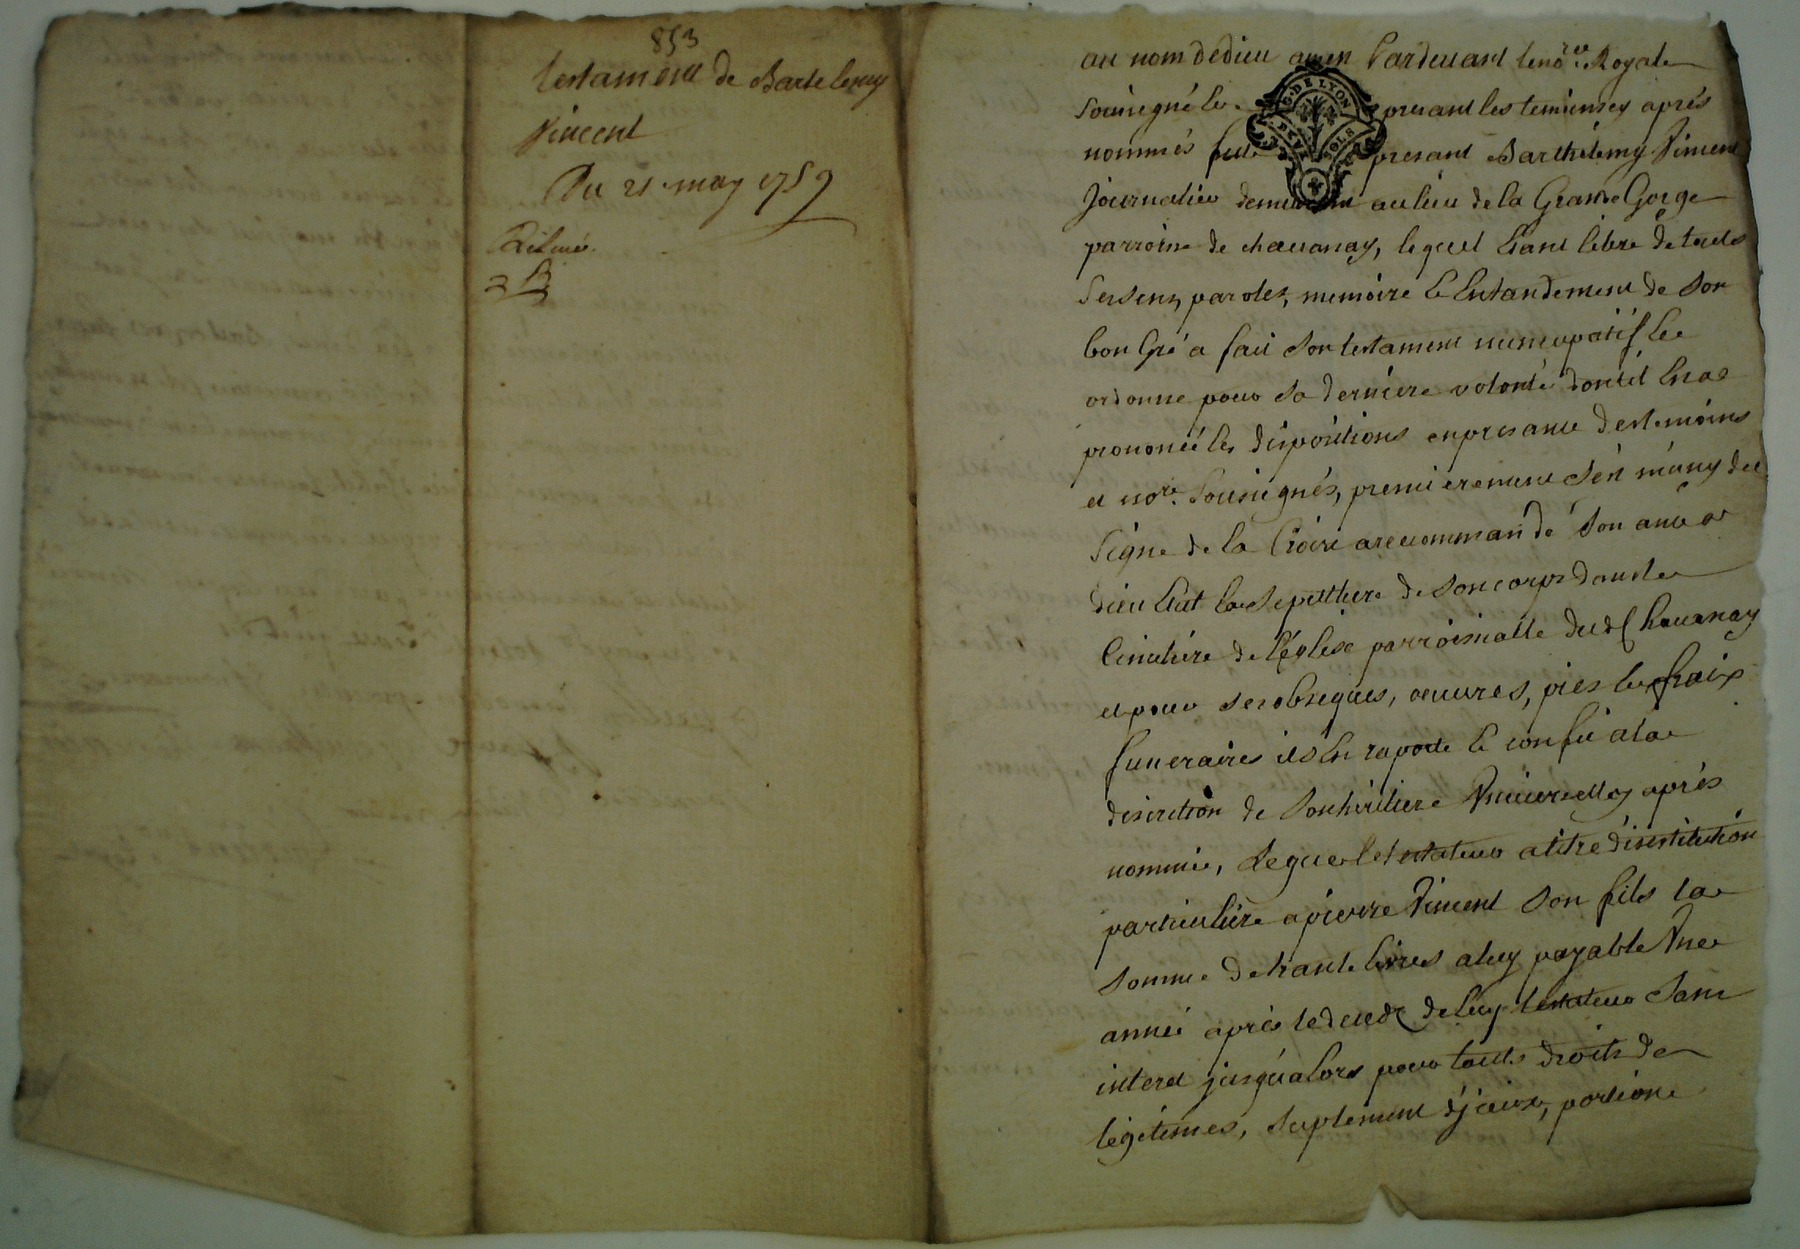 853
testament de Bartelemy
Vincent
Du 21 may 1759
au nom dedieu amen Pardevant leno.re Royale
Soussigné le presant les temienses aprés
nommés fut presant Barthélemy Vincent
Journalier demeurant aulieu de la Grande Gorge
parroisse de chavanay, lequel Etant libre de touts
ses sens, paroles, memoire & Entandement de son
bon Gré a fait son testament nuncupatif &
ordonne pour sa derniere volonté dontil Ena
prononcé les dispositions enpresance destemoins
et no.re Soussignés, premierement s'est muny du
signe de la Croix arecommandé son ame a
dieu Elut la Sepulture de soncorps dansle
Cimetiere de l'église parroissialle dud Chavanay
etpour ses obseques, oeuvres, pies & fraix
funeraires ils En raporte & confie ala
discretion de sonheritiere Universelle aprés
nommée, Legue letestateur atitre d'institution
particuliere apierre Vincent son fils la
somme detrante livres aluy payable Une
année aprés ledeced de luy testateur sans
interet jusqu'alors pour touts droits de
légitimes, suplement d'jceux, portions